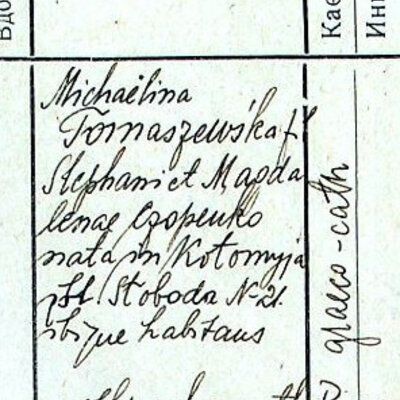 Вдо
Кае
Ини
Michaëlina
Tomaszewska fl
Stephani et Magda
lenae Czopenko
nata in Kołomyja
St. Słoboda N-21.
ibique habitans
graeco-cath